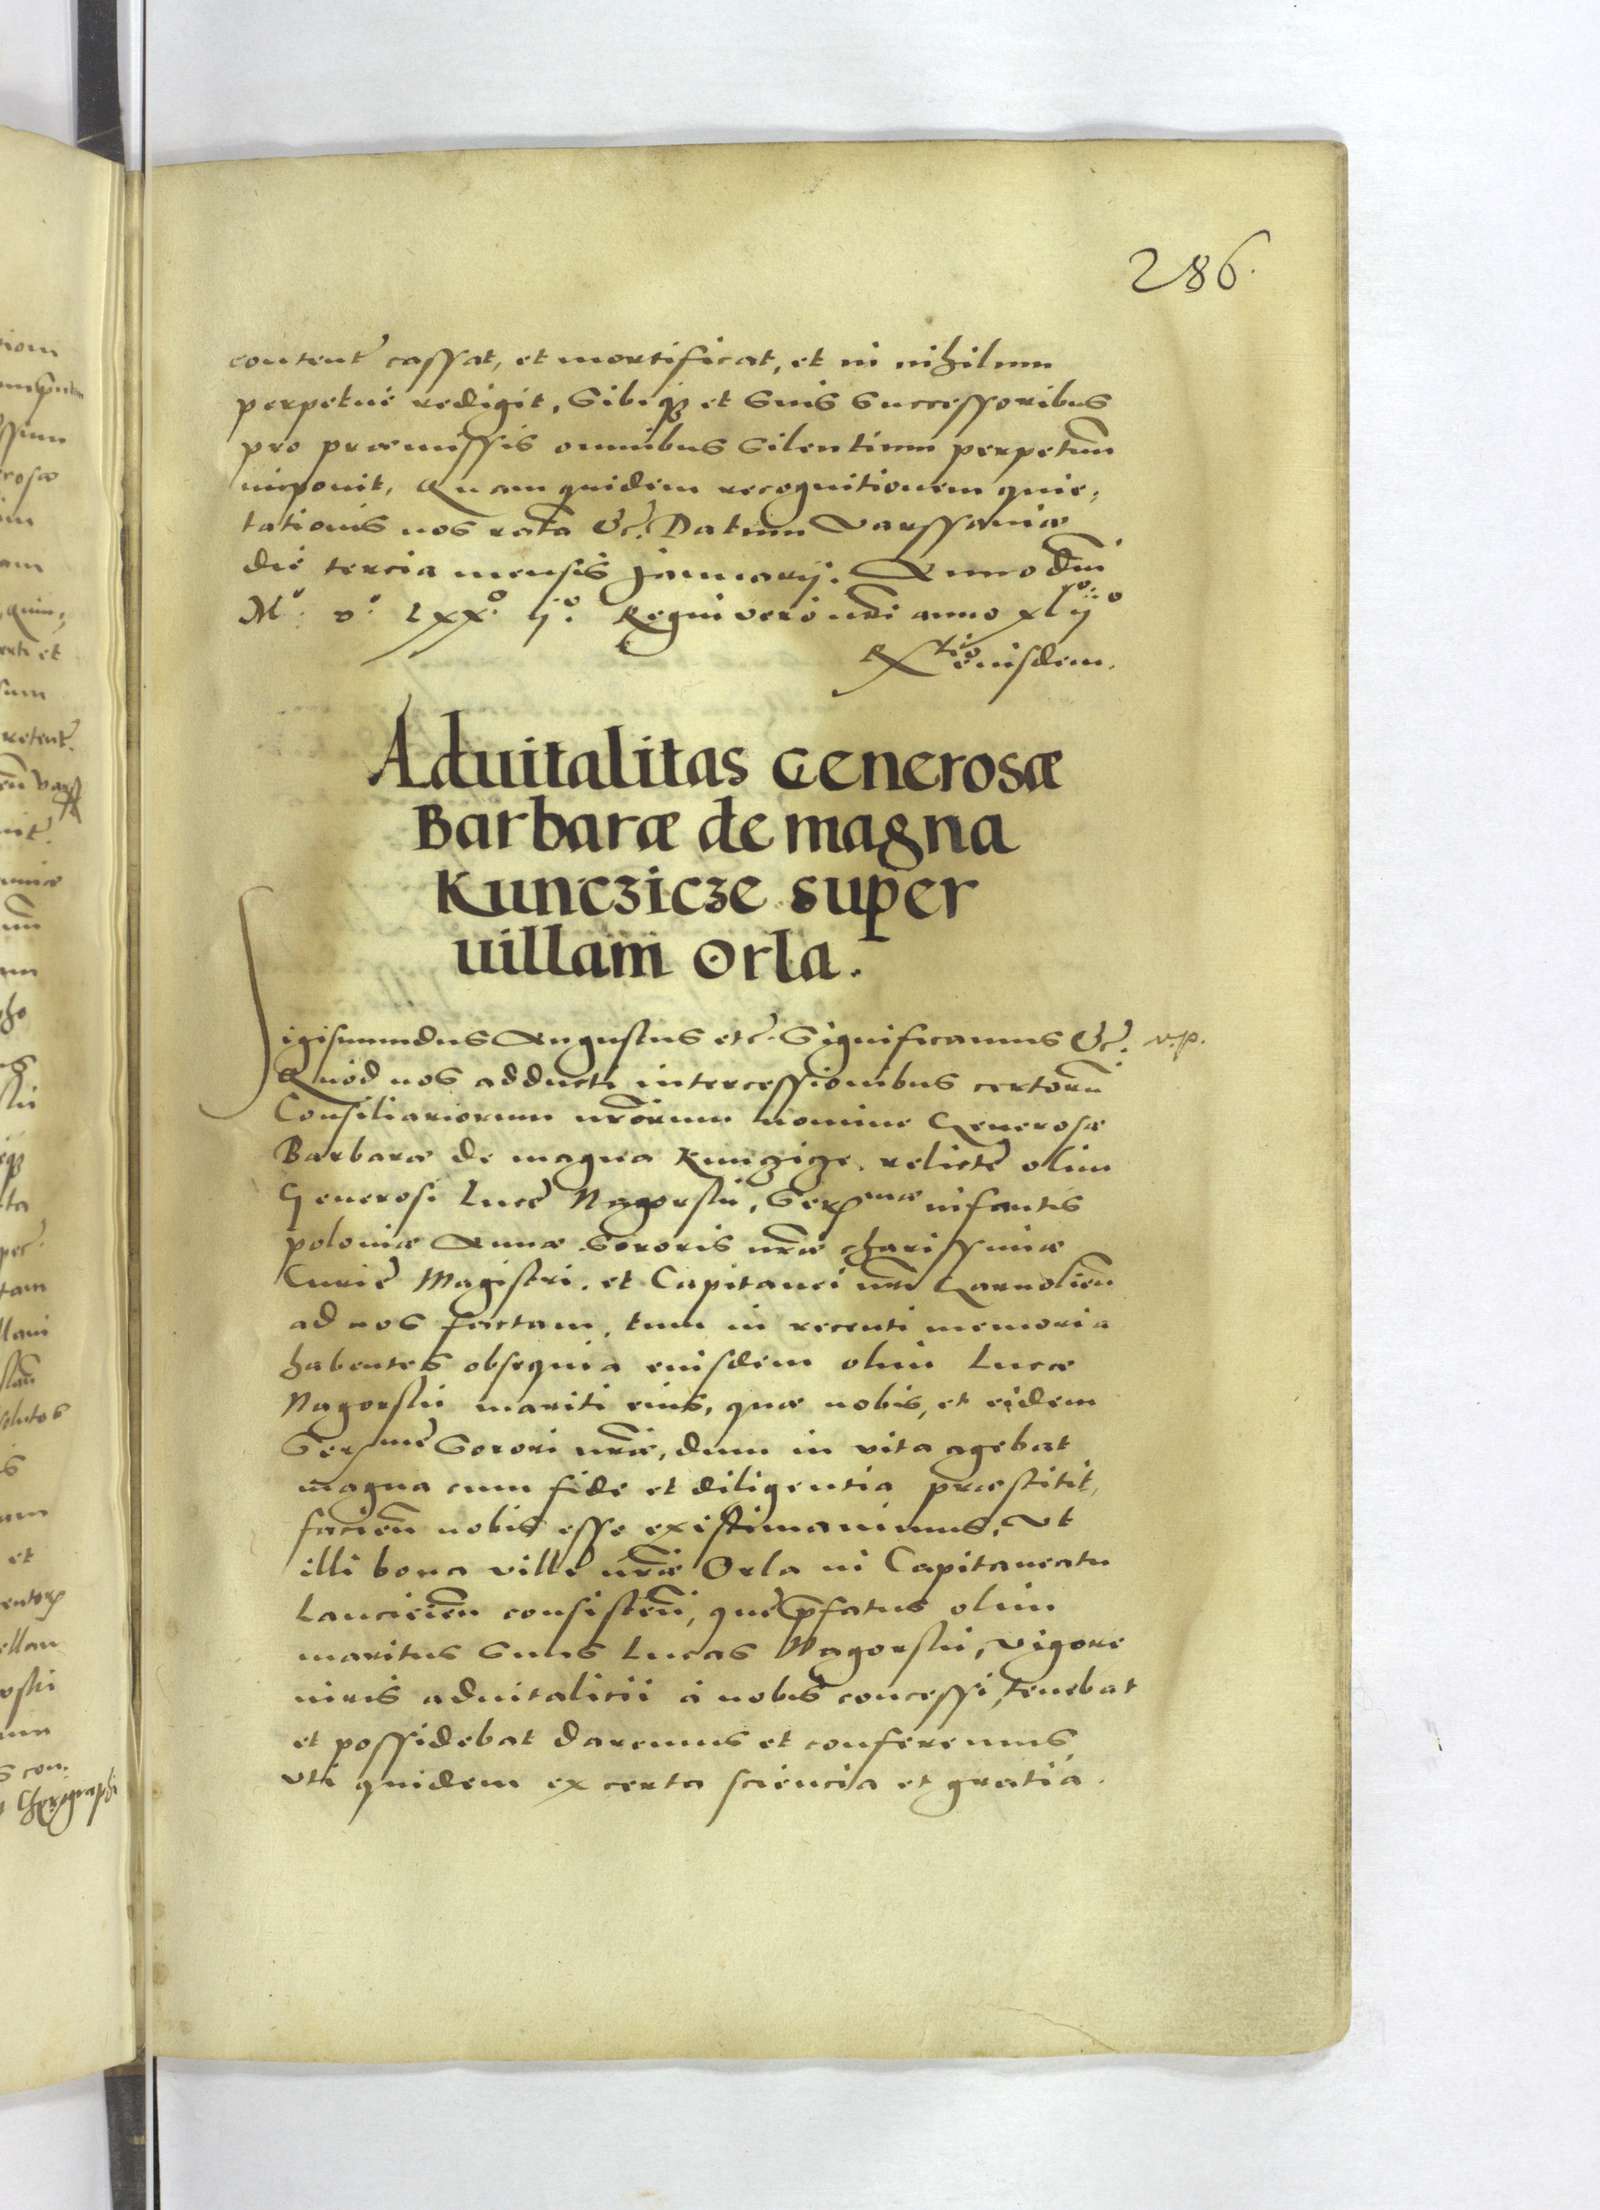 286.
content~ cassat, et mortificat, et in nihilum
perpetuè redigit, Sibiq3 et Suis Successoribus
pro præmissis omnibus Silentium perpetuu~
imponit, Quam quidem recognitionem quie,
tationis nos rata~ &c~. Datum Varssaviæ
die tercia mensis Januarij. Anno dni~
Mº. vº. Lxxº. ijº. Regni vero nri~ anno xlijº
Rtio eiusdem.
Aduitalitas Generosæ
Barbaræ de magna
Kunczicze super
uillam Orla.
Sigismundus Augustus etc~. Significamus &c~. v.p.
Quod nos adducti intercessionibus certoru~
Consiliariorum nr~orum nomine Generosæ
Barbaræ de magna Kunczicze, relictę olim
Generosi Lucę Nagorskii, Serenmæ infantis
poloniæ Annæ Sororis nr~æ charissimæ
Curię Magistri, et Capitanei nri~
ad nos factam, tum in recenti memoria
habentes obsequia eiusdem olim Lucæ
Nagorskii mariti eius, quæ nobis, et eidem
Sermę Sorori nr~æ, dum in vita agebat
magna cum fide et diligentia præstitit,
facien~ nobis esse existimavimus, Vt
illi bona villę nr~æ Orla in Capitaneatu
Lancicien~ consisten~, quę p~fatus olim
maritus Suus Lucas Nagorskii, Vigore
iuris aduitalitii à nobis concessi, tenebat
et possidebat daremus et conferemus,
Vti quidem ex certa sciencia et gratia.